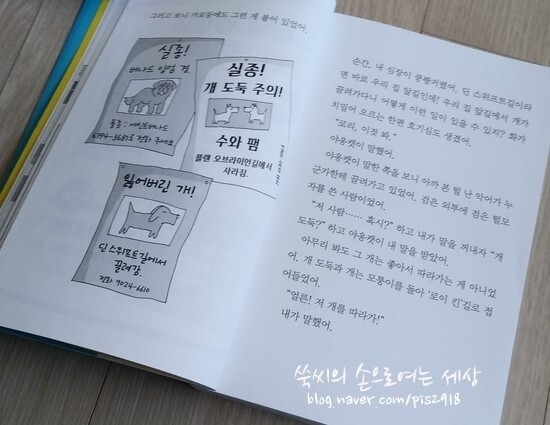 그러고 보니 가로등에도 그런 게 붙어 있었어.
실종!
버나드 일병 겸.
품종: 세인트버나드
6794-3687로 전화 주세요
실종!
개 도둑 주의!
수와 팸
플랜 오브라이언길에서
사라짐.
잃어버린 개!
딘 스위프트길에서
끌려감.
전화 9024-6610
순간, 내 심장이 쿵쾅거렸어. 딘 스위프트길이라
면 바로 우리 집 앞길인데! 우리 집 앞길에서 개가
끌려가다니 어떻게 이런 일이 있을 수 있지? 화가
치밀어 오르는 한편 호기심도 생겼어.
"로리, 이것 봐."
야옹캣이 말했어.
야옹캣이 말한 쪽을 보니 아까 본 털 난 악어가 누
군가한테 끌려가고 있었어. 검은 외투에 검은 털모
자를 쓴 사람이었어.
"저 사람…… 혹시?" 하고 내가 말을 꺼내자 "개
도둑?" 하고 야옹캣이 내 말을 받았어.
아무리 봐도 그 개는 좋아서 따라가는 게 아니었
어. 개 도둑과 개는 모퉁이를 돌아 '로이 킨'길로 접
어들었어.
"얼른! 저 개를 따라가!"
내가 말했어.
쑥씨의 손으로여는 세상
blog.naver.com/pis2918